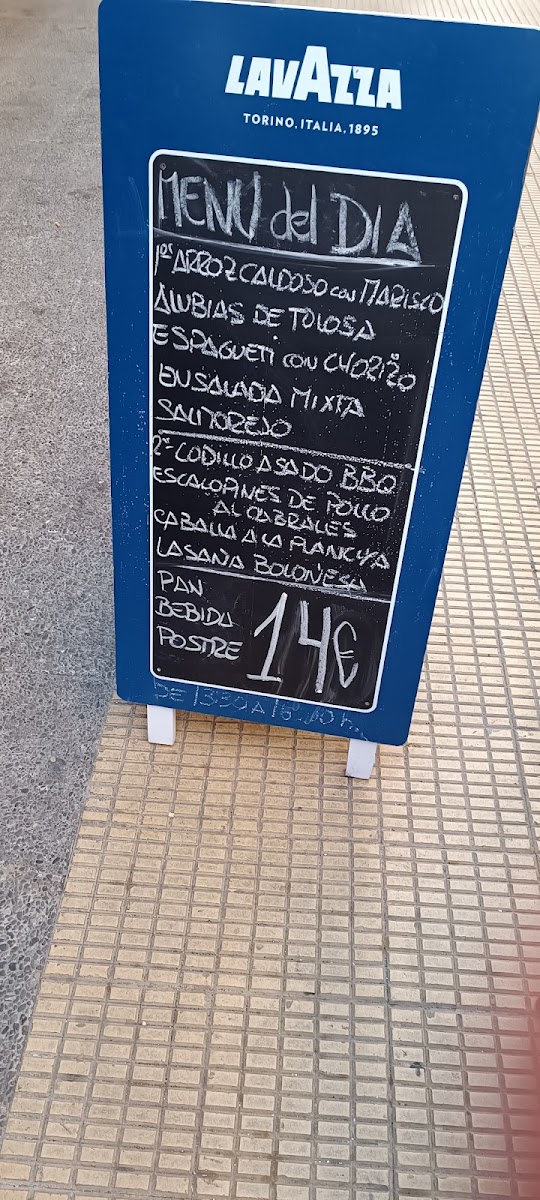 LAVAZZA
TORINO, ITALIA, 1895
MENU del DIA
1os ARROZ CALDOSO con MARISCO
ALUBIAS DE TOLOSA
ESPAGUETI con CHORIZO
ENSALADA MIXTA
SALMOREJO
2os CODILLO ASADO BBQ
ESCALOPINES DE POLLO
AL CABRALES
CABALLA A LA PLANCHA
LASAÑA BOLOÑESA
PAN
BEBIDA
POSTRE
14€
DE 13:30 A 16:00 h.